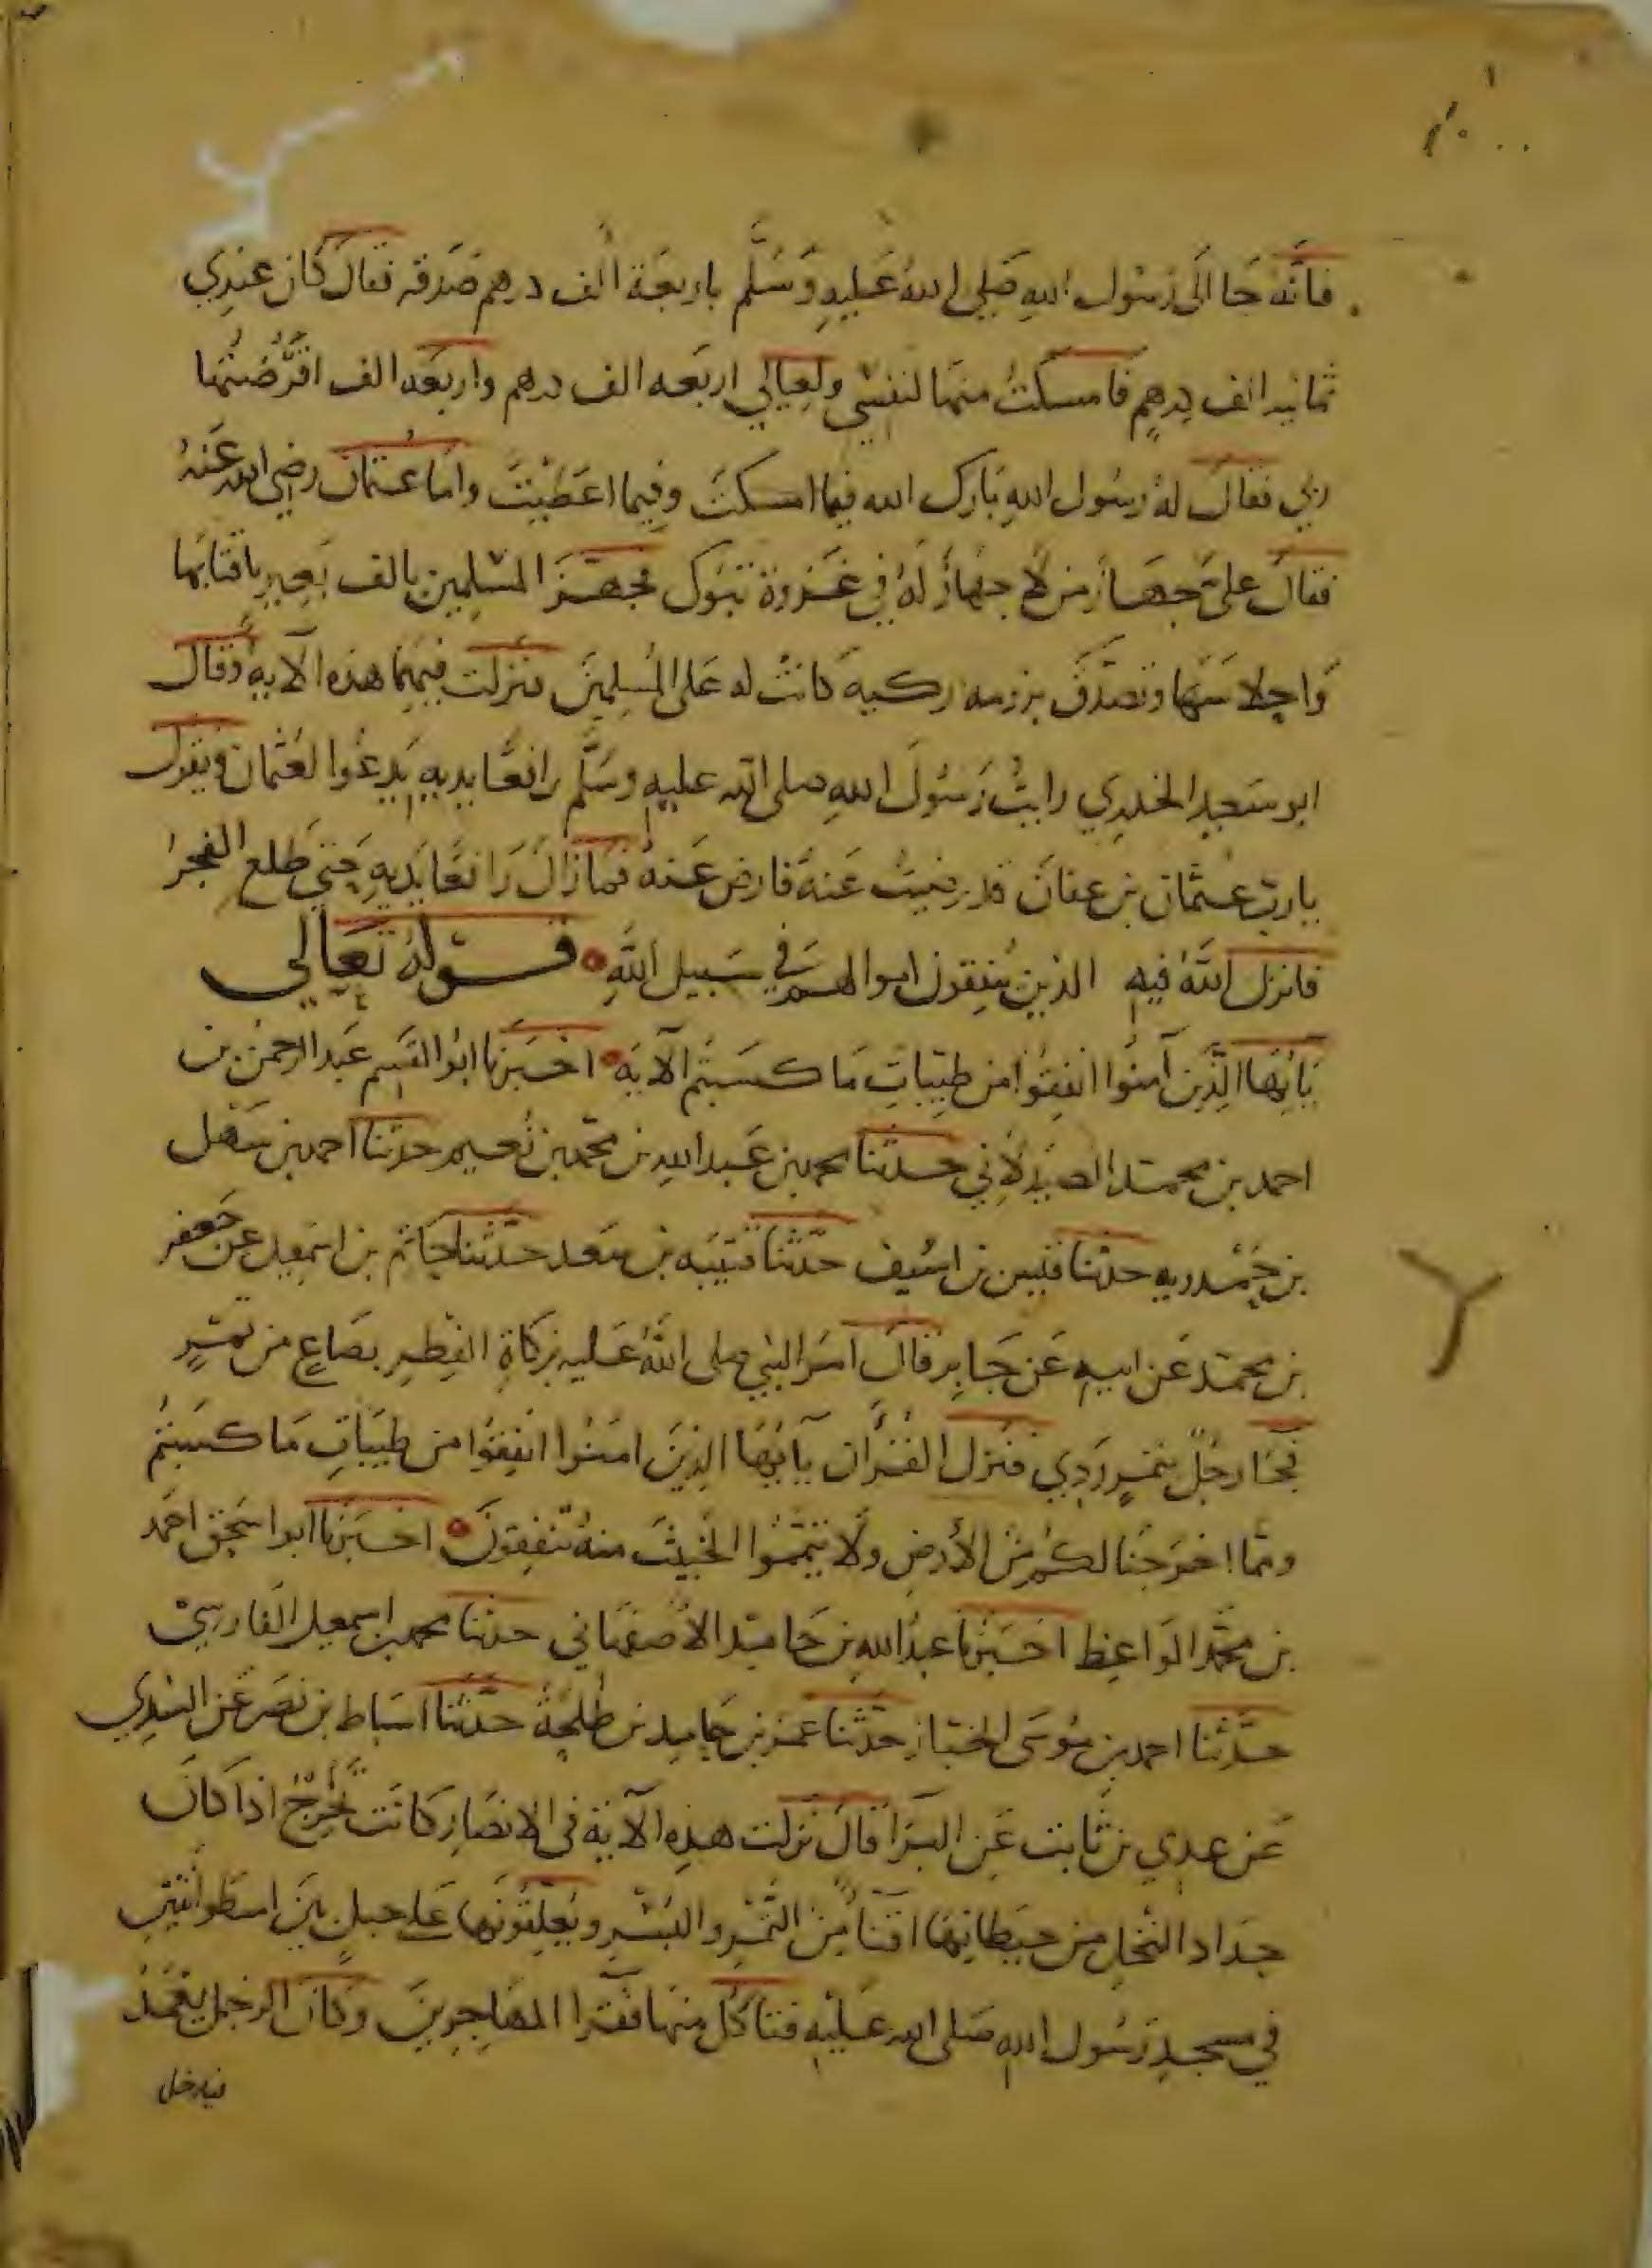 فانَّهُ جَا اَلى رَسُول اللهِ صَلى اللهُ عَليهِ وَسَلَّم باربعَة الف درهم صَدَقه فقال كان عندي
ثمانيه الف دِرهمٍ فامسكتُ منهَا لنفسْي ولعيالي اربعه الف درهم واربعَه الف اقرَضْتُهَا
ربي فقال لهُ رسُول اللهِ بَارك الله فيما امسكتَ وفيما اعَطَيْتَ واما عثمان رضي الله عَنهُ
فقالَ علىَّ جهَازُ من لَا جهَازُ لَهُ في غَزوة تبَوك فجهَّزَ المسْلِمين بالف بَعِيرٍ باقتَابَها
وَاحِلاسَهَا وتصَدَّقَ برومه ركيه كَانتْ له عَلى المُسلِمينَ فنزلت فيهِمَا هذه الآيه وقال
ابو سَعيد الخدري رايتُ رَسُولَ اللهِ صلى الله عليهِ وسَلَّم رافعًا يديهِ يَدعُوا لعُثْمان ويقول
يارب عثمان بن عفانَ قد رضيتُ عَنهُ فارض عَنهُ فمازالَ رَافعًا يَديهِ حتي طلع الفجرُ
فانزل اللهُ فيهِ الذين يُنفِقون اموالهم في سَبيل اللهِ قوله تعَالي
يَايُّهَا الَّذين آمنُوا انفِقُوا من طيِّباتِ مَا كسَبتُم الآيَه اخبَرنا ابو القسِم عَبد الرحمن بن
احمد بن محمد الصَيدَلاني حدثنا محمد بن عَبد اللهِ بن محمد بن نُعيم حدثنا احمد بن سَهْل
بن حَمْدويه حدثنا قيس بن اسُيف حدَّثنا قتيبه بن سَعد حدَّثنا حَاتم بن اسْمعيل عن جَعفر
بن محمد عَن ابيهِ عَن جَابِر قال اَمَر النبي صلى اللهُ عَليه بزكَاةِ الفِطرِ بصَاعٍ من تمْرٍ
فجَا رجُلٌ بتمرٍ رَدِي فنزل القُرآن يآيُّهَا الذِينَ امنُوا انفِقُوا من طيبَاتِ مَا كسَبتمُ
ومما اخرَجنَا لكمُ من الأَرضِ ولَا تيَمَّمُوا الخبيثَ منهُ تنفِقونَ اخبَرنا ابو اسحق احمَد
بن محمَّد الوَاعِظ اخبَرنا عبدُ اللهِ بن حَامد الاصفهَاني حدثنا محمد بن اسمعيل الفَارسيْ
حدَّثنا احمد بن مُوسَى الخباز حدَّثنا عمرُ بن حَامِد بن طَلحَةَ حدَّثنا اسبَاط بن نصَر عَن السُدِي
عَن عدِي بن ثَابت عَن البَرَا قالَ نزلت هذِه الآية في الانصَارِ كَانَت تُخرِجُ اذا كَانَ
جدَاد النخلِ من حيطانِهَا اقنَاً مِن التَّمْرِ والبُسْرِ ويُعلِقُونَهَا عَلى حبلٍ بَينَ اسطوانتَينِ
في مسجدِ رَسُول اللهِ صَلى الله عَليْهِ فتاكُل منهَا فقَرا المهَاجِرِينَ وكَان الرجل يعْمَدُ
فيدخل